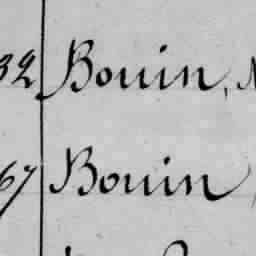 32 Bouin,
67 Bouin,